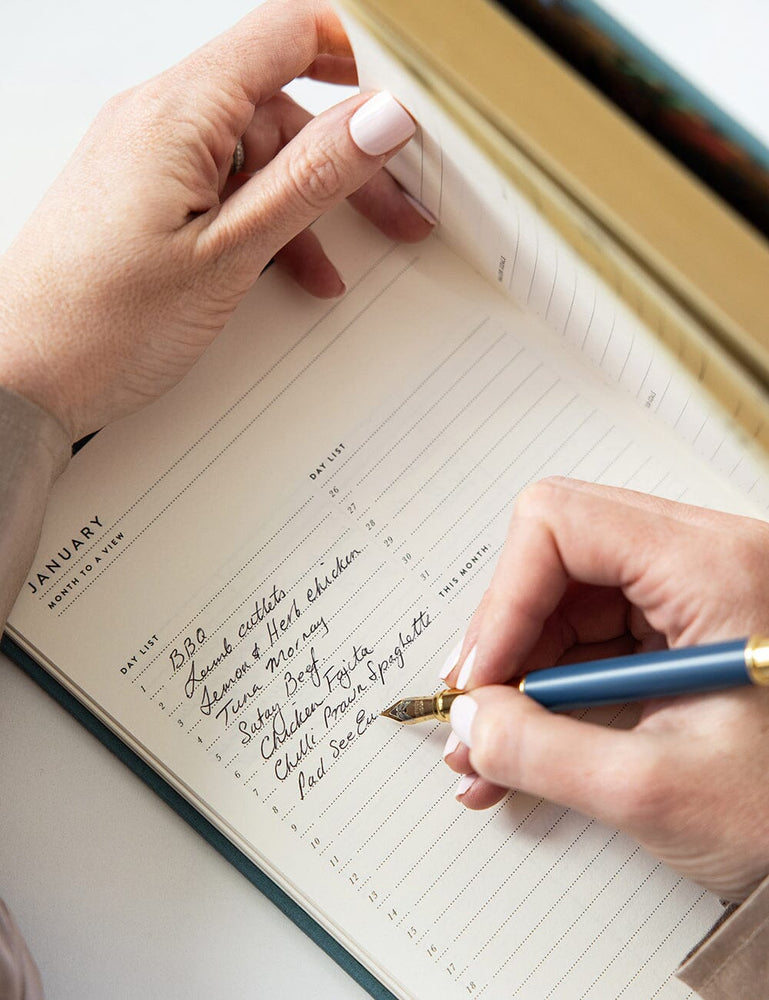 JANUARY
MONTH TO A VIEW
DAY LIST
1 BBQ
2 Lamb cutlets
3 Lemon & Herb chicken
4 Tuna Mornay
5 Satay Beef
6 Chicken Fajita
7 Chilli Prawn Spaghette
8 Pad See Eu
9
10
11
12
13
14
15
16
17
18
DAY LIST
26
27
28
29
30
31
THIS MONTH: